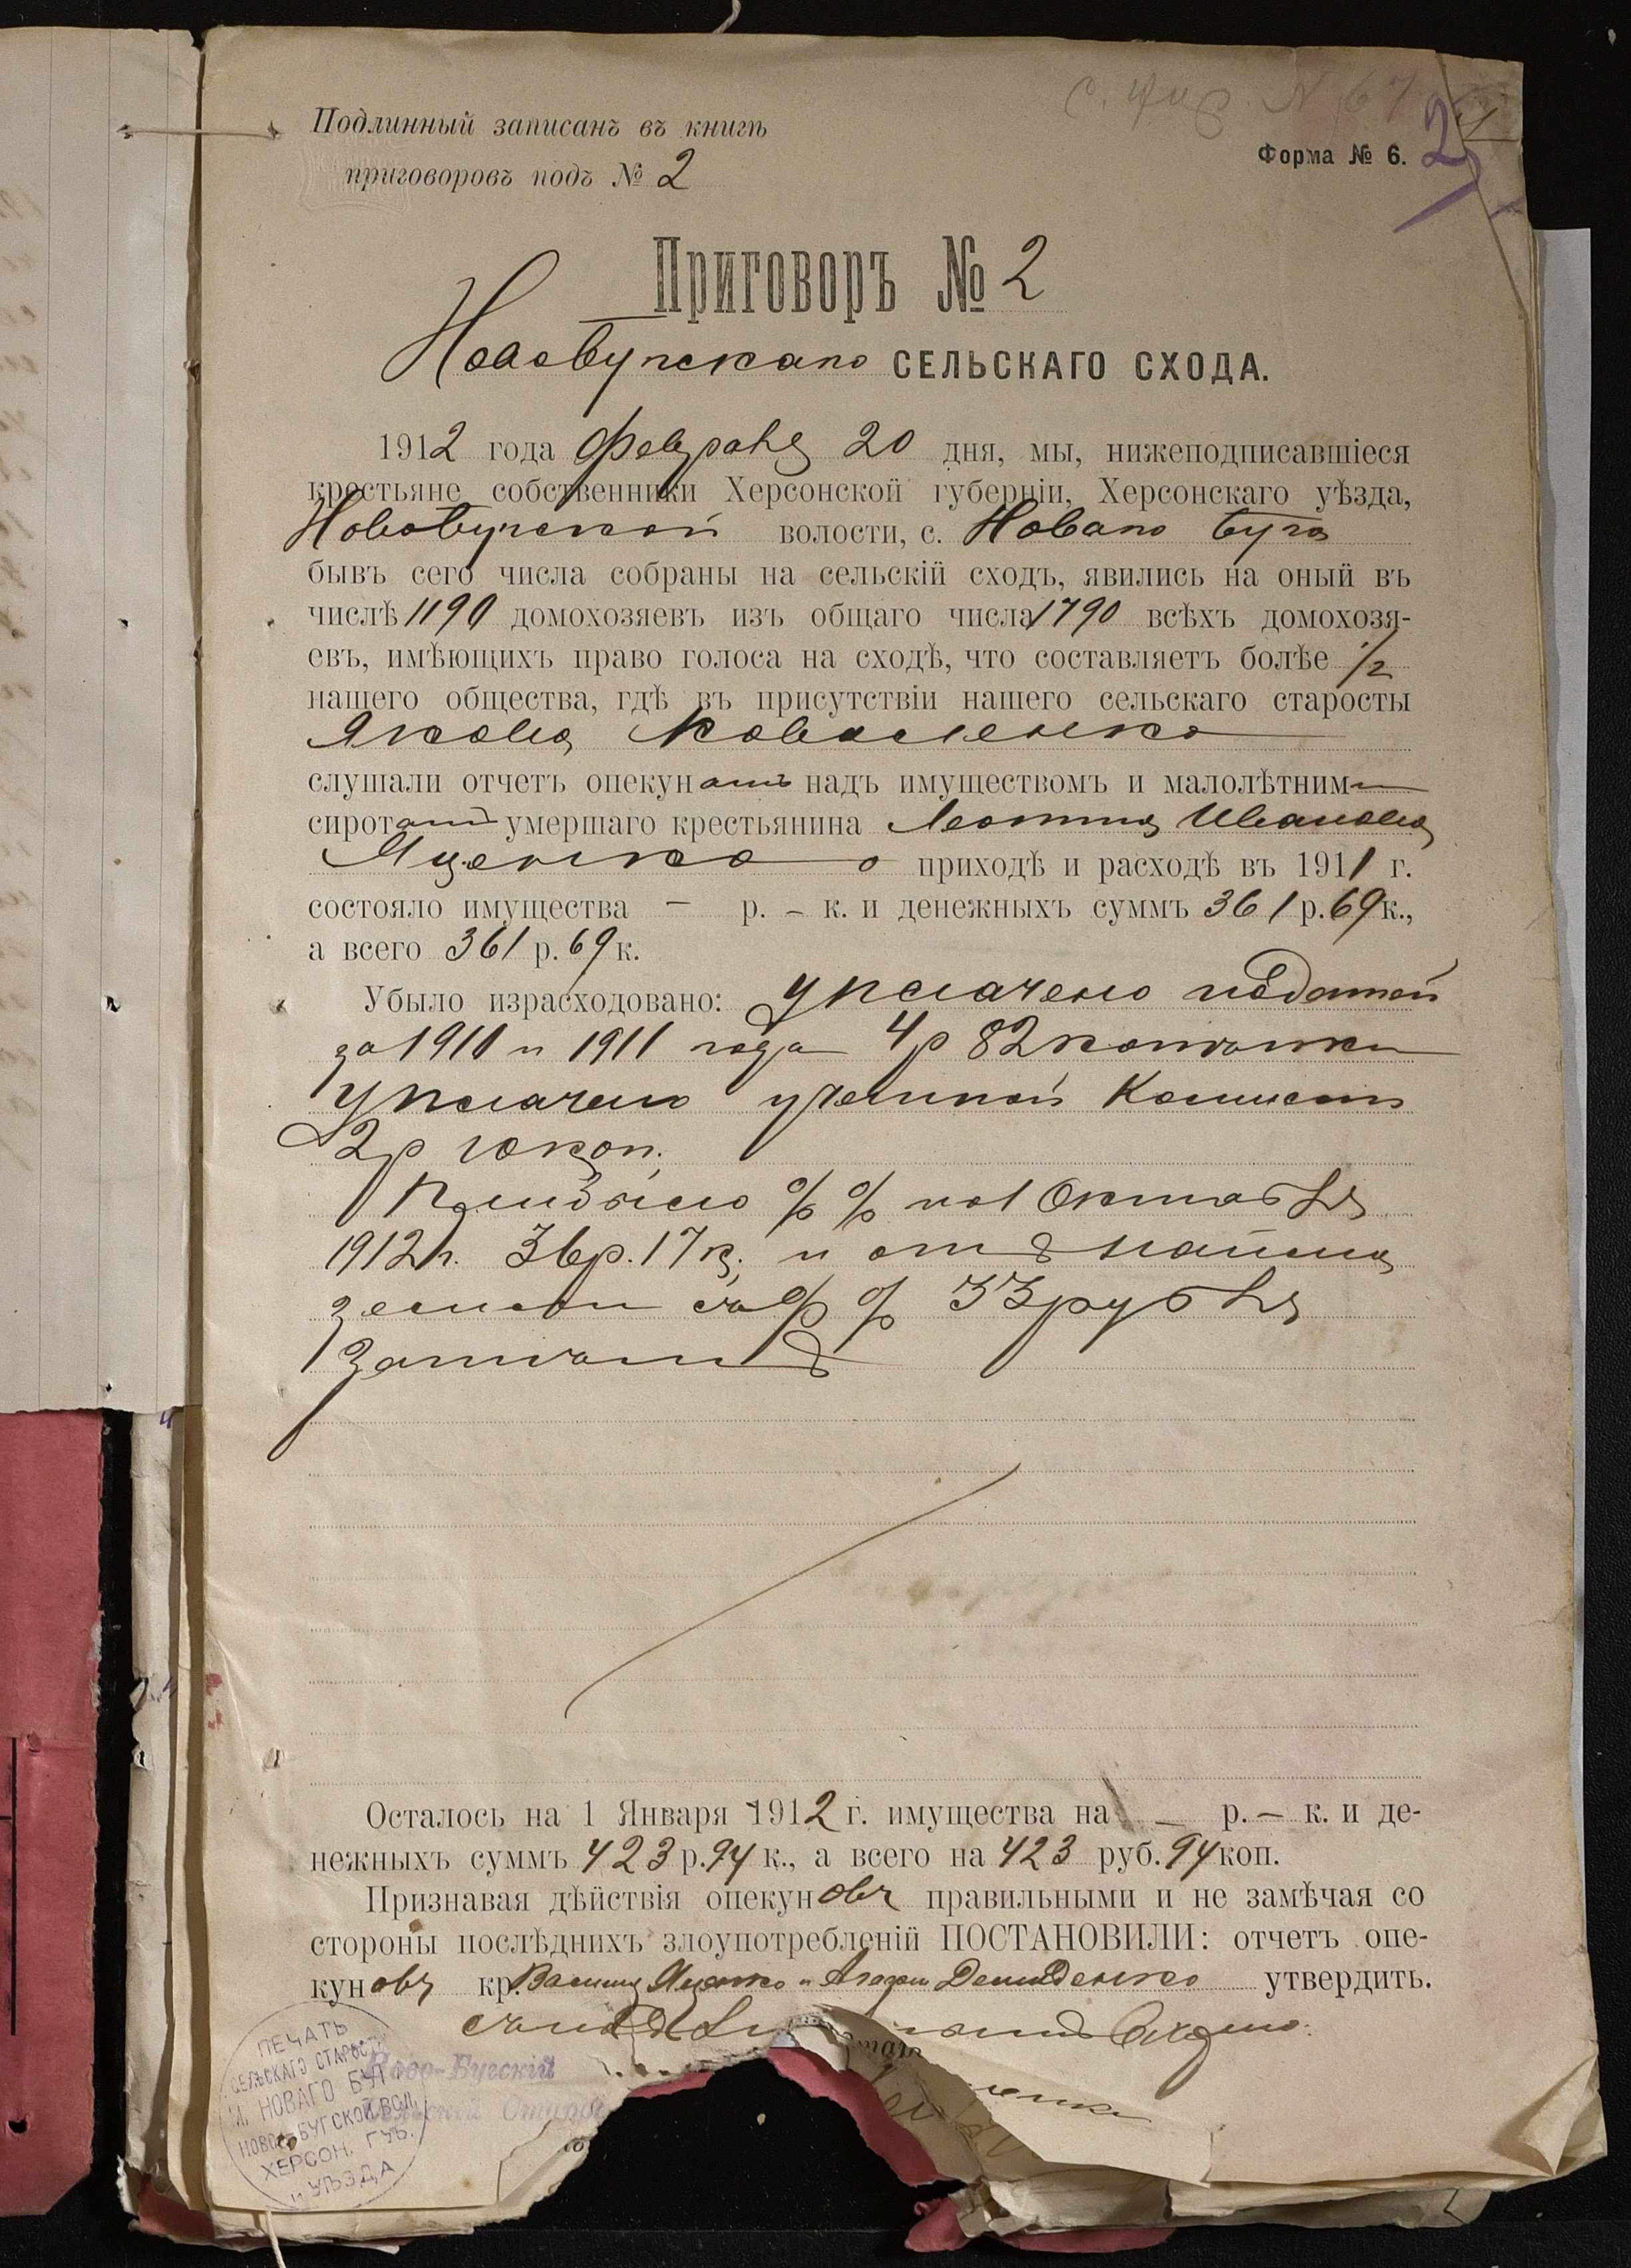 Подлинный записанъ въ книгѣ
приговоровъ подъ № 2
Форма № 6.
2
Приговоръ № 2
Новобугскаго СЕЛЬСКАГО СХОДА.
1912 года февраля 20 дня, мы, нижеподписавшіеся
крестьяне собственники Херсонской губерніи, Херсонскаго уѣзда,
Новобугской волости, с. Новаго Буга
бывъ сего числа собраны на сельскій сходъ, явились на оный въ
числѣ 1190 домохозяевъ изъ общаго числа 1790 всѣхъ домохозя-
евъ, имѣющихъ право голоса на сходѣ, что составляетъ болѣе 1/2
нашего общества, гдѣ въ присутствіи нашего сельскаго старосты
Якова Коваленко
слушали отчетъ опекунами надъ имуществомъ и малолѣтними
сиротами умершаго крестьянина Леонтия Иванова
Яценко о приходѣ и расходѣ въ 1911 г.
состояло имущества — р. – к. и денежныхъ суммъ 361 р. 69 к.,
а всего 361 р. 69 к.
Убыло израсходовано: уплачено податей
за 1910 и 1911 года 4 р 82 копейки
уплачено
2 р 10 коп.
Прибыло % % по 1 Октября
1912 г. 36 р. 17 к. и отъ найма
земли 33 рубля
Осталось на 1 Января 1912 г. имущества на — р. – к. и де-
нежныхъ суммъ 423 р. 94 к., а всего на 423 руб. 94 коп.
Признавая дѣйствія опекуновъ правильными и не замѣчая со
стороны послѣднихъ злоупотребленій ПОСТАНОВИЛИ: отчетъ опе-
куновъ кр. Василия Яценко и Демиденко утвердить.
ПЕЧАТЬ
СЕЛЬСКАГО СТАРОСТЫ
М. НОВАГО БУГА
НОВО-БУГСКОЙ ВОЛ.
ХЕРСОН. ГУБ.
и УѢЗДА
Ново-Бугскій